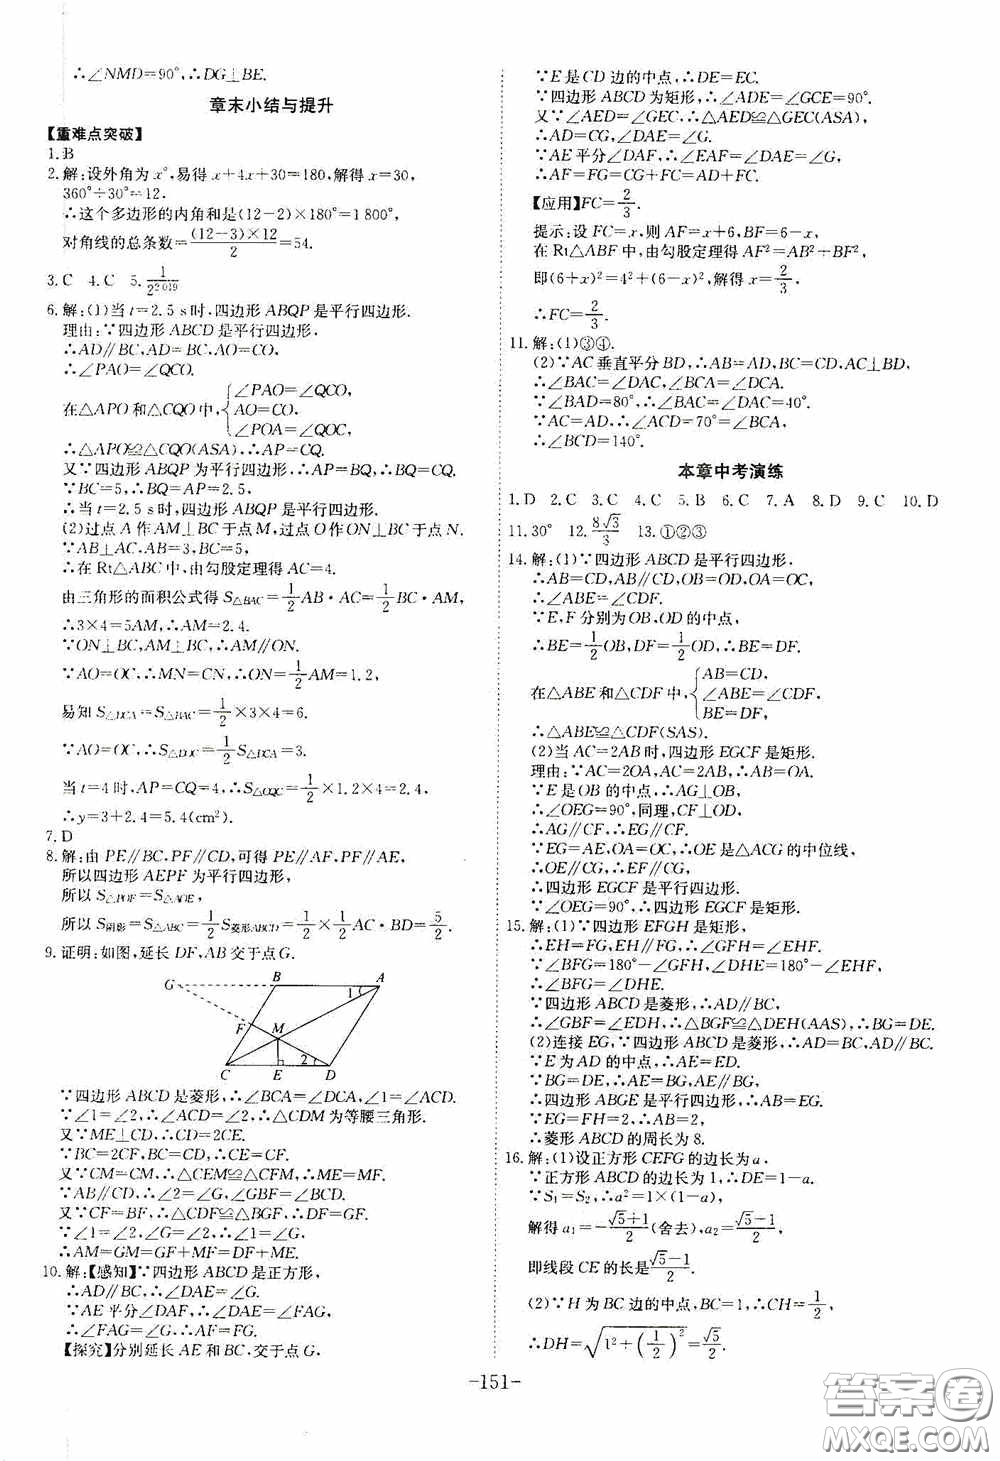 ∴∠NMD=90°,∴DG⊥BE.
章末小结与提升
【重难点突破】
1.B
2.解:设外角为x°,易得x+4x+30=180,解得x=30,
360°÷30°=12.
∴这个多边形的内角和是(12-2)×180°=1 800°,
对角线的总条数=(12-3)×12/2=54.
3.C 4.C 5.1/2^2 019
6.解:(1)当t=2.5 s时,四边形ABQP是平行四边形.
理由:∵四边形ABCD是平行四边形,
∴AD∥BC,AD=BC,AO=CO,
∴∠PAO=∠QCO.
在△APO和△CQO中,{∠PAO=∠QCO, AO=CO, ∠POA=∠QOC,
∴△APO≌△CQO(ASA),∴AP=CQ.
又∵四边形ABQP为平行四边形,∴AP=BQ,∴BQ=CQ.
∵BC=5,∴BQ=AP=2.5,
∴当t=2.5 s时,四边形ABQP是平行四边形.
(2)过点A作AM⊥BC于点M,过点O作ON⊥BC于点N.
∵AB⊥AC,AB=3,BC=5,
∴在Rt△ABC中,由勾股定理得AC=4.
由三角形的面积公式得S△BAC=1/2AB·AC=1/2BC·AM,
∴3×4=5AM,∴AM=2.4.
∵ON⊥BC,AM⊥BC,∴AM∥ON.
∵AO=OC,∴MN=CN,∴ON=1/2AM=1.2,
易知S△DCA=S△BAC=1/2×3×4=6.
∵AO=OC,∴S△DOC=1/2S△DCA=3.
当t=4时,AP=CQ=4,∴S△OQC=1/2×1.2×4=2.4,
∴y=3+2.4=5.4(cm²).
7.D
8.解:由PE∥BC,PF∥CD,可得PE∥AF,PF∥AE,
所以四边形AEPF为平行四边形,
所以S△POF=S△AOE,
所以S阴影=S△ABC=1/2S菱形ABCD=1/2×1/2AC·BD=5/2.
9.证明:如图,延长DF,AB交于点G.
G B 1 A
F M
2
C E D
∵四边形ABCD是菱形,∴∠BCA=∠DCA,AB∥CD.
∵∠1=∠2,∴∠ACD=∠2,∴△CDM为等腰三角形.
又∵ME⊥CD,∴CD=2CE.
∵BC=2CF,BC=CD,∴CE=CF.
又∵CM=CM,∴△CEM≌△CFM,∴ME=MF.
∵AB∥CD,∴∠2=∠G,∠GBF=∠BCD.
又∵CF=BF,∴△CDF≌△BGF,∴DF=GF.
∵∠1=∠2,∠G=∠2,∴∠1=∠G,
∴AM=GM=GF+MF=DF+ME.
10.解:【感知】∵四边形ABCD是正方形,
∴AD∥BC,∴∠DAE=∠G.
∵AE平分∠DAF,∴∠DAE=∠FAG,
∴∠FAG=∠G,∴AF=FG.
【探究】分别延长AE和BC,交于点G,
∵E是CD边的中点,∴DE=EC.
∵四边形ABCD为矩形,∴∠ADE=∠GCE=90°.
又∵∠AED=∠GEC,∴△AED≌△GEC(ASA),
∴AD=CG,∠DAE=∠G.
∵AE平分∠DAF,∴∠EAF=∠DAE=∠G,
∴AF=FG=CG+FC=AD+FC.
【应用】FC=2/3.
提示:设FC=x,则AF=x+6,BF=6-x,
在Rt△ABF中,由勾股定理得AF²=AB²+BF²,
即(6+x)²=4²+(6-x)²,解得x=2/3,
∴FC=2/3.
11.解:(1)③④.
(2)∵AC垂直平分BD,∴AB=AD,BC=CD,AC⊥BD,
∴∠BAC=∠DAC,∠BCA=∠DCA.
∵∠BAD=80°,∴∠BAC=∠DAC=40°.
∵AC=AD,∴∠ACD=70°=∠BCA,
∴∠BCD=140°.
本章中考演练
1.D 2.C 3.C 4.C 5.B 6.C 7.A 8.D 9.C 10.D
11.30° 12.8√3/3 13.①②③
14.解:(1)∵四边形ABCD是平行四边形,
∴AB=CD,AB∥CD,OB=OD,OA=OC,
∴∠ABE=∠CDF.
∵E,F分别为OB,OD的中点,
∴BE=1/2OB,DF=1/2OD,∴BE=DF.
在△ABE和△CDF中,{AB=CD, ∠ABE=∠CDF, BE=DF,
∴△ABE≌△CDF(SAS).
(2)当AC=2AB时,四边形EGCF是矩形.
理由:∵AC=2OA,AC=2AB,∴AB=OA.
∵E是OB的中点,∴AG⊥OB,
∴∠OEG=90°,同理,CF⊥OD,
∴AG∥CF,∴EG∥CF.
∵EG=AE,OA=OC,∴OE是△ACG的中位线,
∴OE∥CG,∴EF∥CG,
∴四边形EGCF是平行四边形.
∵∠OEG=90°,∴四边形EGCF是矩形.
15.解:(1)∵四边形EFGH是矩形,
∴EH=FG,EH∥FG,∴∠GFH=∠EHF.
∵∠BFG=180°-∠GFH,∠DHE=180°-∠EHF,
∴∠BFG=∠DHE.
∵四边形ABCD是菱形,∴AD∥BC,
∴∠GBF=∠EDH,∴△BGF≌△DEH(AAS),∴BG=DE.
(2)连接EG,∵四边形ABCD是菱形,∴AD=BC,AD∥BC.
∵E为AD的中点,∴AE=ED.
∵BG=DE,∴AE=BG,AE∥BG,
∴四边形ABGE是平行四边形,∴AB=EG.
∵EG=FH=2,∴AB=2,
∴菱形ABCD的周长为8.
16.解:(1)设正方形CEFG的边长为a,
∵正方形ABCD的边长为1,∴DE=1-a.
∵S₁=S₂,∴a²=1×(1-a),
解得a₁=-(√5+1)/2(舍去),a₂=(√5-1)/2,
即线段CE的长是(√5-1)/2.
(2)∵H为BC边的中点,BC=1,∴CH=1/2,
∴DH=√(1²+(1/2)²)=√5/2.
-151-
答案圈
MXQE.COM